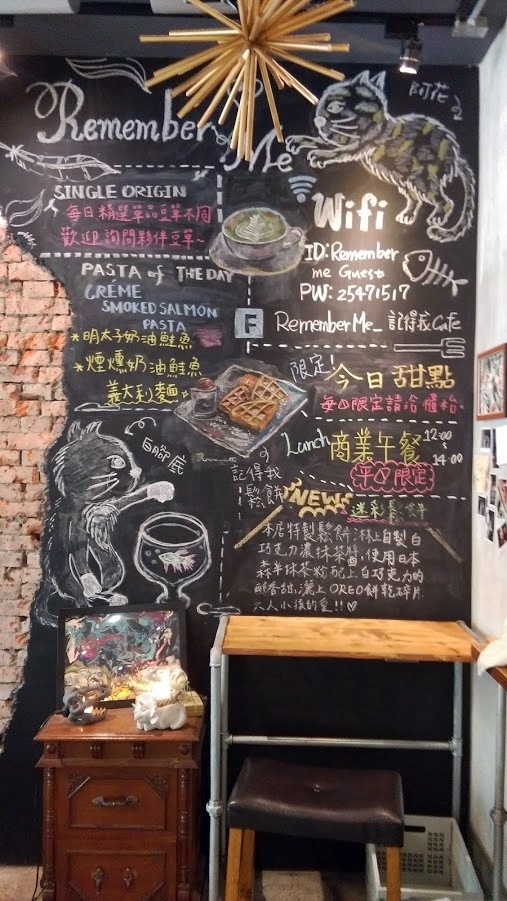 Remember
Me
SINGLE ORIGIN
每日精選單品豆單不同
歡迎詢問夥伴豆單~
PASTA of THE DAY
CRÉME
SMOKED SALMON
PASTA
*明太子奶油鮭魚
*煙燻奶油鮭魚
義大利麵
白腳底
Wifi
ID:Remember
me Guest
PW: 25471517
F RememberMe_ 記得我Cafe
限定!
今日甜點
每日限定請洽櫃枱
Lunch 商業午餐 12:00
14:00
平日限定
記得我
鬆餅
NEW
迷彩鬆餅
本店特製鬆餅淋上自製白
巧克力濃抹茶醬,使用日本
森半抹茶粉配上白巧克力的
醇香甜,灑上OREO餅乾碎片
大人小孩的愛!!♡